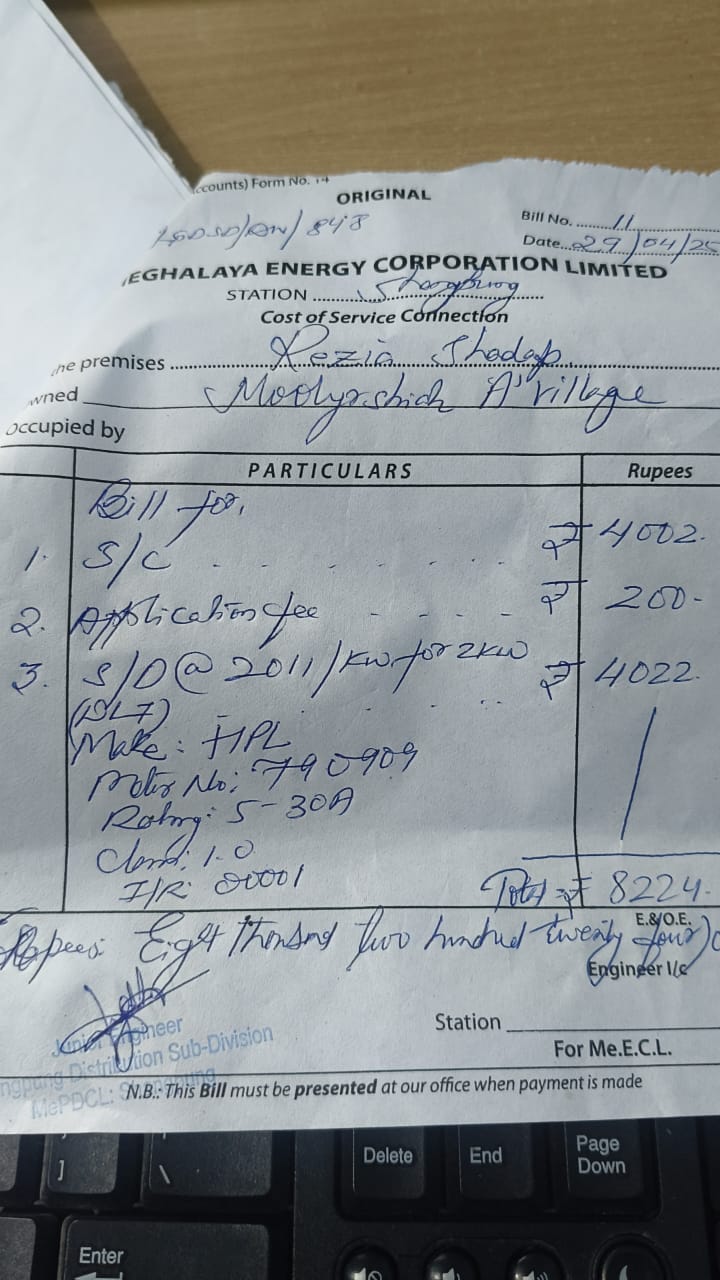 ccounts) Form No. 14
ORIGINAL
/848
Bill No. 11
Date 29/04/25
EGHALAYA ENERGY CORPORATION LIMITED
STATION Shangpung
Cost of Service Connection
he premises Rezia Shadap
wned Moolyrshiah 'A' village
occupied by
PARTICULARS Rupees
Bill for,
1. S/C ₹ 4002.
2. Application fee ₹ 200-
3. S/D @ 2011/KW for 2KW ₹ 4022.
(DLT)
Make: HPL
Meter No: 790909
Rating: 5-30A
Class: 1.0
I/R: 00001
Total = ₹ 8224.
E.&O.E.
Rupees Eight thousand two hundred twenty four)
Engineer I/c
Junior Engineer
ngpung Distribution Sub-Division
MePDCL: Shangpung
Station
For Me.E.C.L.
N.B.: This Bill must be presented at our office when payment is made
]
\
Delete
End
Page
Down
Enter